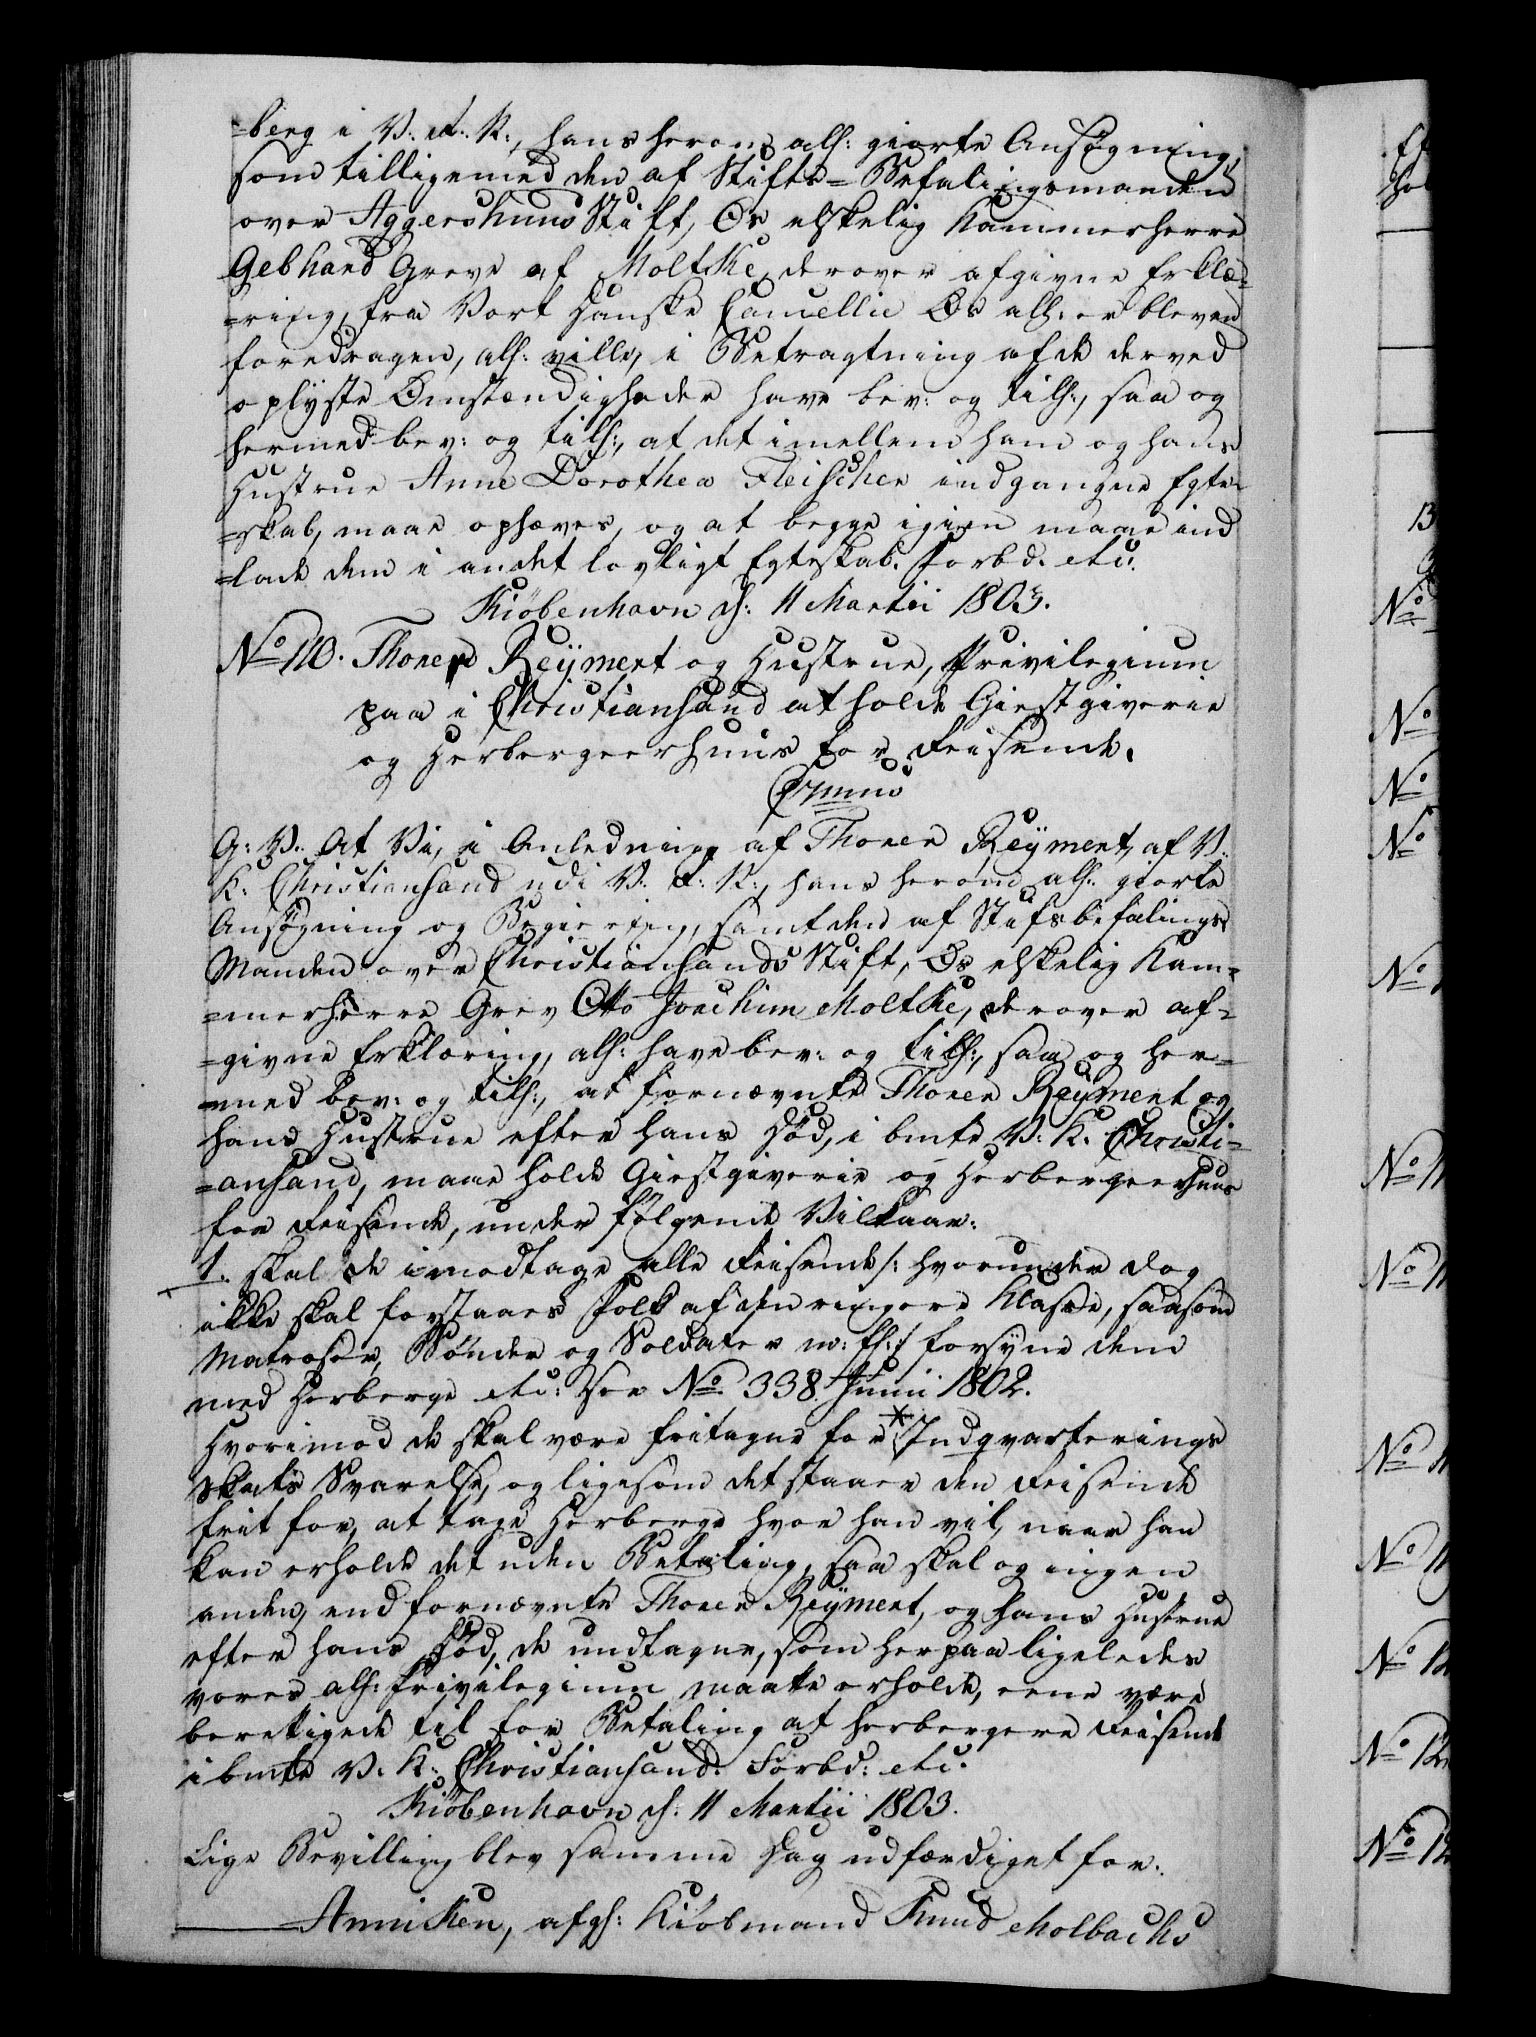 =berg i V: R: N:, hans herom alh: giorte Ansögning,
som tilligemed den af Stifts-Befalingsmanden
over Aggershuus Stift, Os elskelig Kammerherre
Gebhard Greve af Moltke, derover afgivne Erklæ=
=ring, fra Vort Danske Cancellie Os alh: er bleven
foredragen, alh: ville, i Betragtning af de derved
oplyste Omstændigheder have bev: og tilh:, saa og
hermed bev: og tilh:, at det imellem ham og hans
Hustrue Anne Dorothea Fleischer indgangne Egte=
=skab, maae ophæves, og at begge igien maae ind
=lade dem i andet lovligt Egteskab. Forbd. etc.
Kiöbenhavn d: 11 Martii 1803.
No 110. Thorer Reÿmert og Hustrue, Privilegium
paa i Christiansand at holde Giestgiverie
og Herbergeerhuus for Reisende.
G: V: At Vi, i Anledning af Thorer Reÿmert, af V.
K: Christiansand udi V: R: N:, hans herom alh: giorte
Ansögning og Begiering, samt den af Stiftsbefalings
Manden over Christiansands Stift, Os elskelig Kam=
=merherre Grev Otto Joachim Moltke, derover af=
=givne Erklæring, alh: have bev: og tilh:, saa og her=
=med bev: og tilh:, at fornævnte Thorer Reÿmert og
hans Hustrue efter hans Död, i bmte V: K: Christi=
=ansand, maae holde Giestgiverie og Herbergeerhuus
for Reisende, under fölgende Vilkaar:
1. skal de imodtage alle Reisende /: hvorunder dog
ikke skal forstaaes Folk af den ringere Klasse, saasom
Matroser, Bönder og Soldater m: fl: :/ forsyne dem
med Herberge etc: See No 338. Junii 1802.
Hvorimod de skal være fritagne for * Indqvarterings
Skats Svarelse, og ligesom det staaer den Reisende
frit for, at tage Herberge hvor han vil, naar han
kan erholde det uden Betaling, saa skal og ingen
anden, end fornævnte Thorer Reÿmert, og hans Hustrue
efter hans Död, de undtagne, som herpaa ligeledes
vores alh: Privilegium maatte erholde, eene være
berettigede til for Betaling at herbergere Reisende
i bmte V: K: Christiansand. Forbd: etc.
Kiöbenhavn d: 11 Martii 1803.
Lige Bevilling blev samme Dag udfærdiget for:
Anniken, afg: Kiöbmand Knud Molbachs